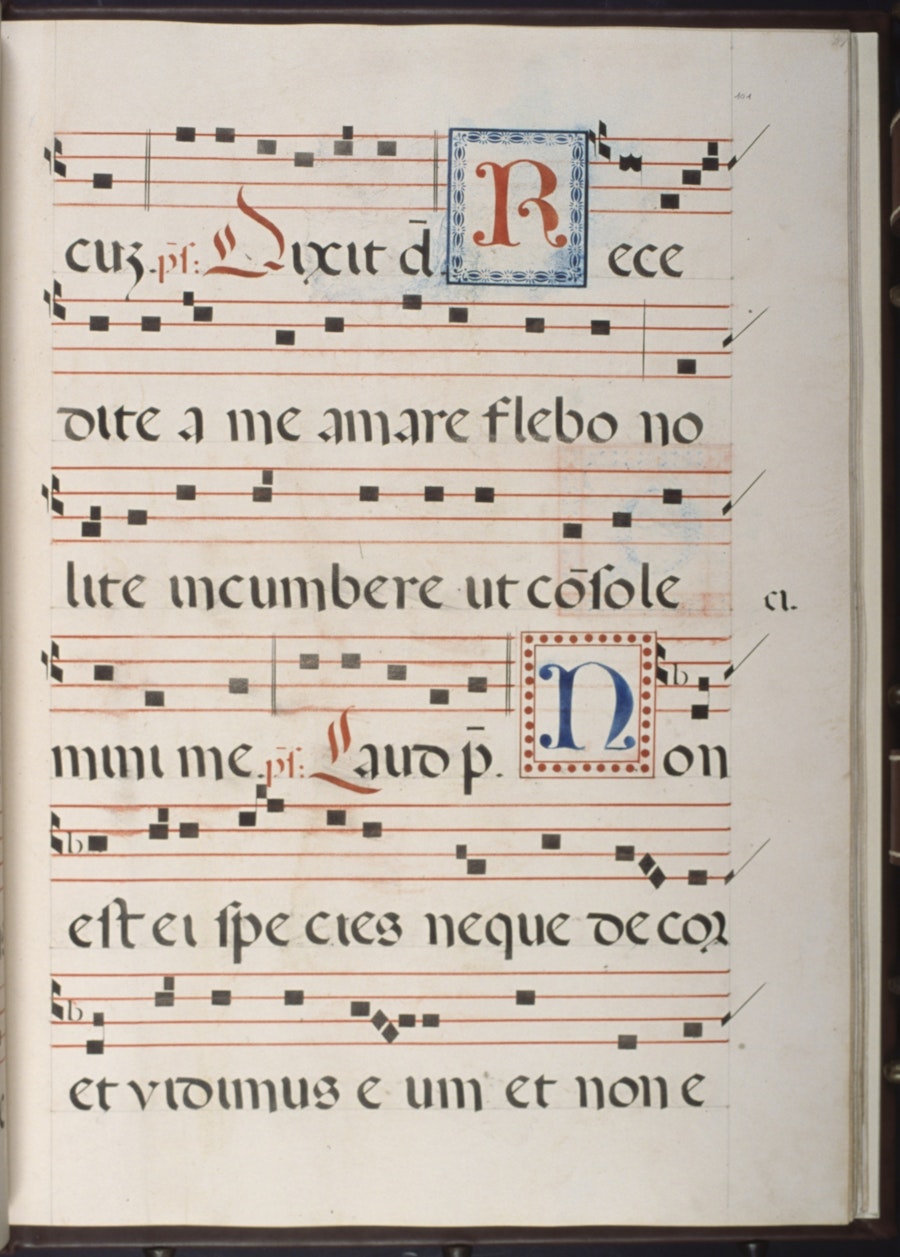 cuʒ. p̄s: Dixit d̄. Rece
dite a me amare flebo no
lite incumbere ut cōsole
ci.
mini me. p̄s: Laud p̄. Non
est ei species neque decoꝛ
et vidimus eum et non e